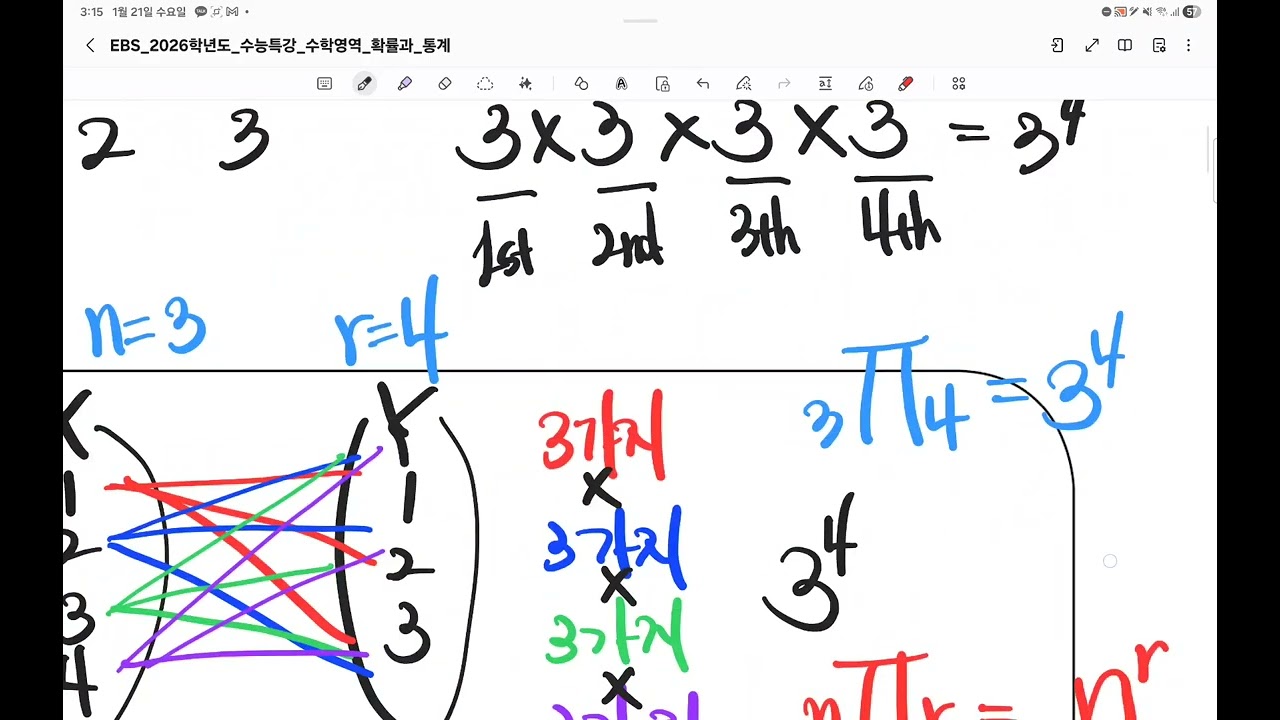 3:15 1월 21일 수요일 57
EBS_2026학년도_수능특강_수학영역_확률과_통계
2 3 3×3×3×3 = 3⁴
1st 2nd 3th 4th
n=3 r=4
₃Π₄ = 3⁴
X Y
1 1
2 2
3 3
4
3가지
×
3가지
×
3가지
×
3가지
3⁴
ₙΠᵣ = nʳ